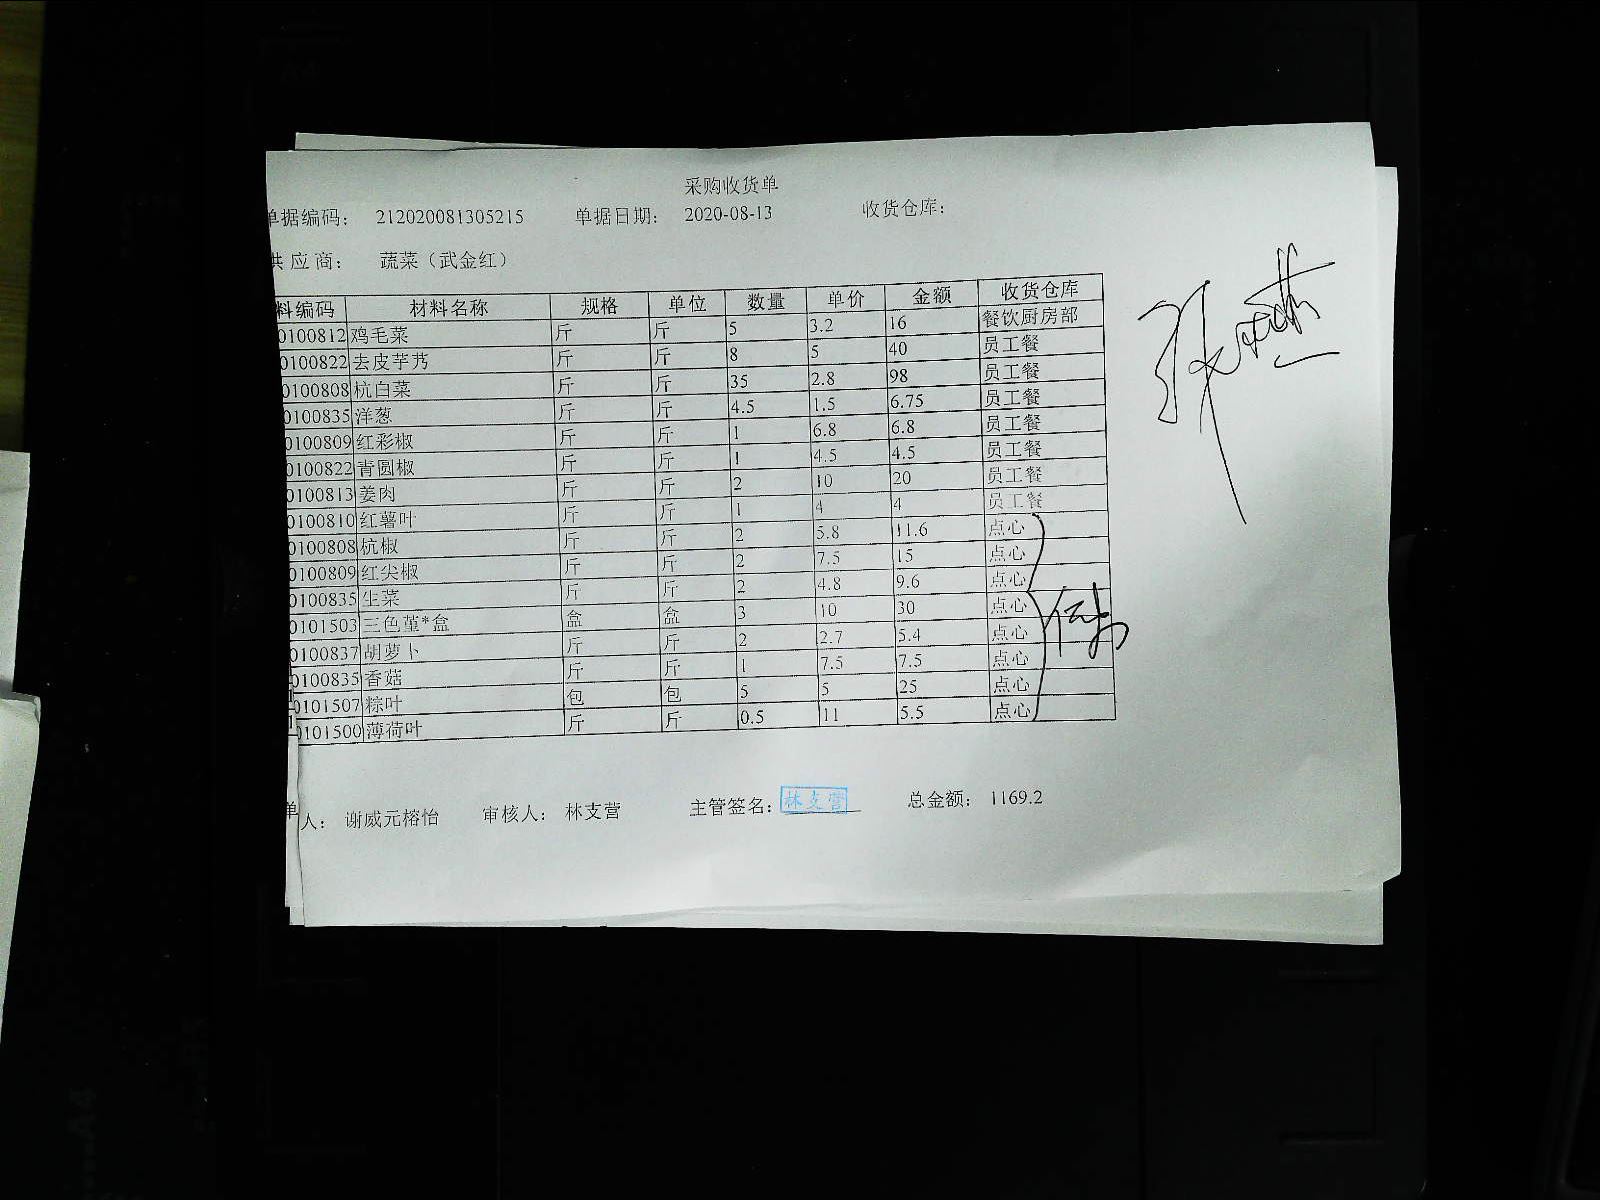 采购收货单
单据编码： 212020081305215 单据日期： 2020-08-13 收货仓库：
供应商： 蔬菜（武金红）
料编码 材料名称 规格 单位 数量 单价 金额 收货仓库
0100812 鸡毛菜 斤 斤 5 3.2 16 餐饮厨房部
0100822 去皮芋艿 斤 斤 8 5 40 员工餐
0100808 杭白菜 斤 斤 35 2.8 98 员工餐
0100835 洋葱 斤 斤 4.5 1.5 6.75 员工餐
0100809 红彩椒 斤 斤 1 6.8 6.8 员工餐
0100822 青圆椒 斤 斤 1 4.5 4.5 员工餐
0100813 姜肉 斤 斤 2 10 20 员工餐
0100810 红薯叶 斤 斤 1 4 4 员工餐
0100808 杭椒 斤 斤 2 5.8 11.6 点心
0100809 红尖椒 斤 斤 2 7.5 15 点心
0100835 生菜 斤 斤 2 4.8 9.6 点心
0101503 三色堇*盒 盒 盒 3 10 30 点心
0100837 胡萝卜 斤 斤 2 2.7 5.4 点心
0100835 香菇 斤 斤 1 7.5 7.5 点心
0101507 粽叶 包 包 5 5 25 点心
0101500 薄荷叶 斤 斤 0.5 11 5.5 点心
单人： 谢威元榕怡 审核人： 林支营 主管签名： 林支营 总金额： 1169.2